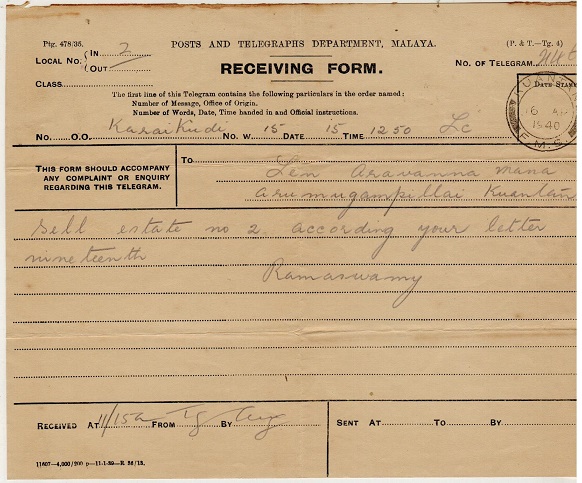 Ptg. 478/35.
POSTS AND TELEGRAPHS DEPARTMENT, MALAYA.
(P. & T.—Tg. 4)
LOCAL NO. IN 2
OUT
RECEIVING FORM.
NO. OF TELEGRAM
CLASS
DATE STAMP
The first line of this Telegram contains the following particulars in the order named:
Number of Message, Office of Origin.
Number of Words, Date, Time handed in and Official instructions.
KUAN
6
1940
F.M.S.
NO. O.O. Karaikudi NO. W. 15 DATE 15 TIME 1250 Lc
THIS FORM SHOULD ACCOMPANY
ANY COMPLAINT OR ENQUIRY
REGARDING THIS TELEGRAM.
TO Aravanna mana
Arumugampillai Kuantan
Sell estate no 2 according your letter
nineteenth
Ramaswamy
RECEIVED AT FROM Tg BY
SENT AT TO BY
11607—4,000/200 p—11-1-39—R. 36/13.